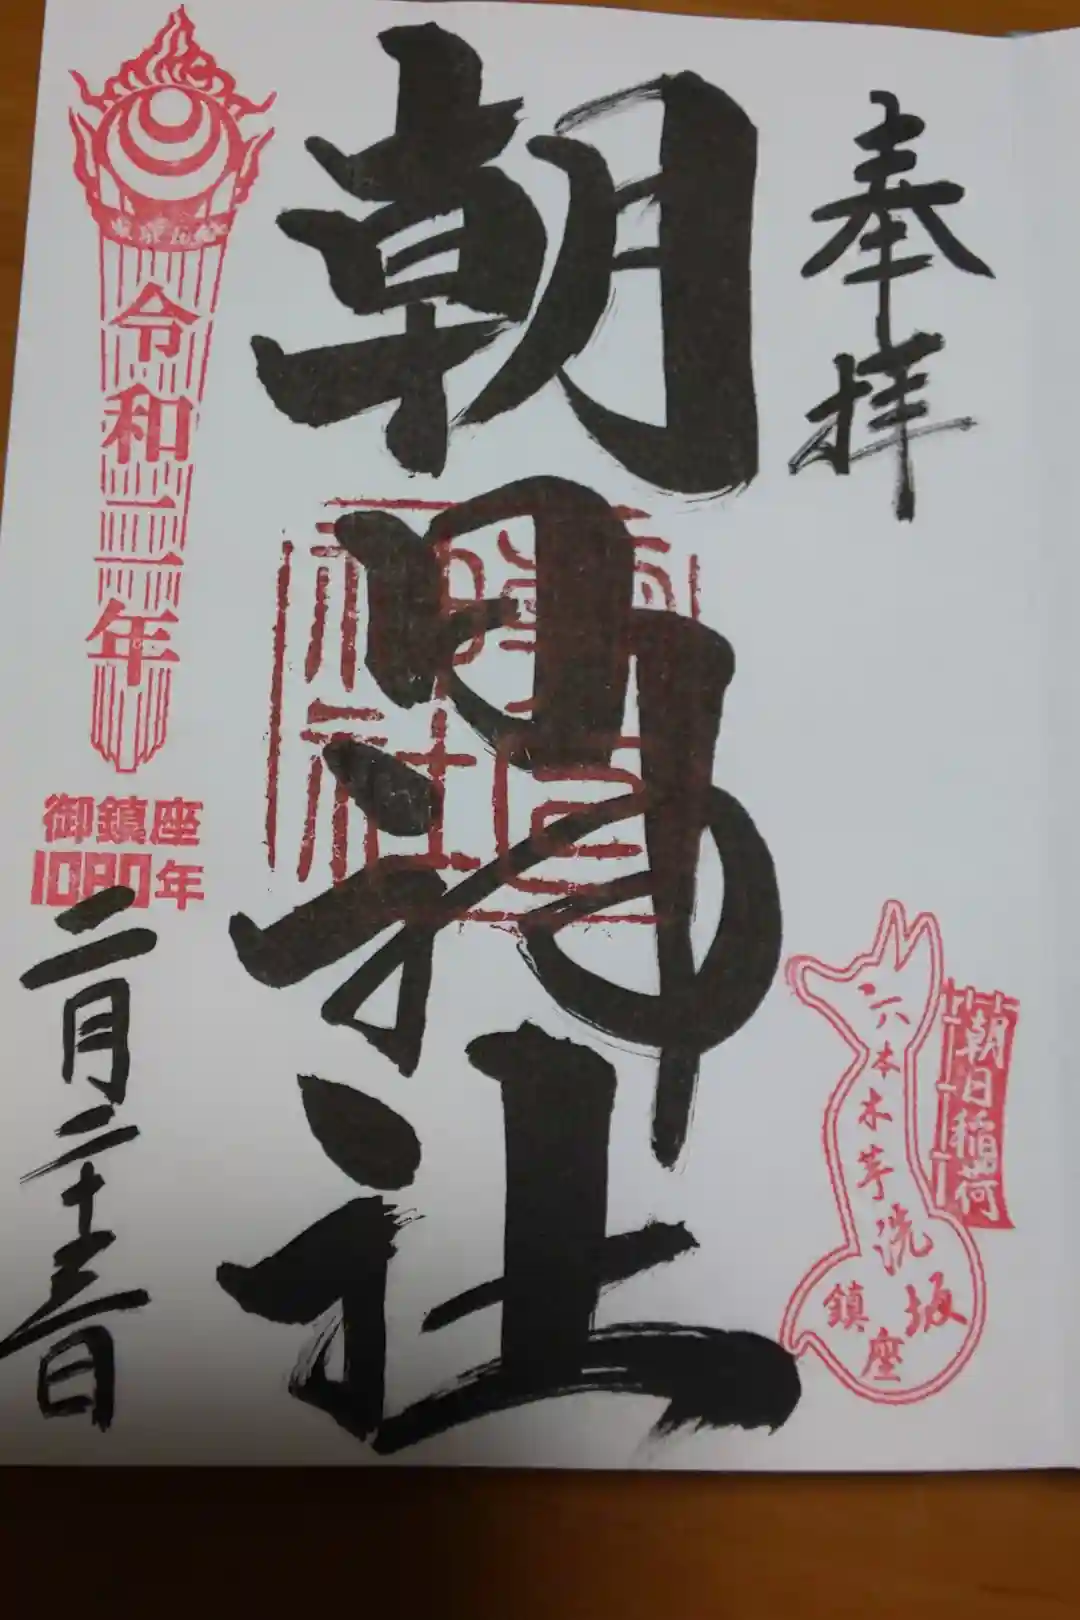 奉拝
朝日神社
朝日神社
六本木芋洗坂
鎮座
朝日稲荷
令和二年
御鎮座
1080年
二月二十三日